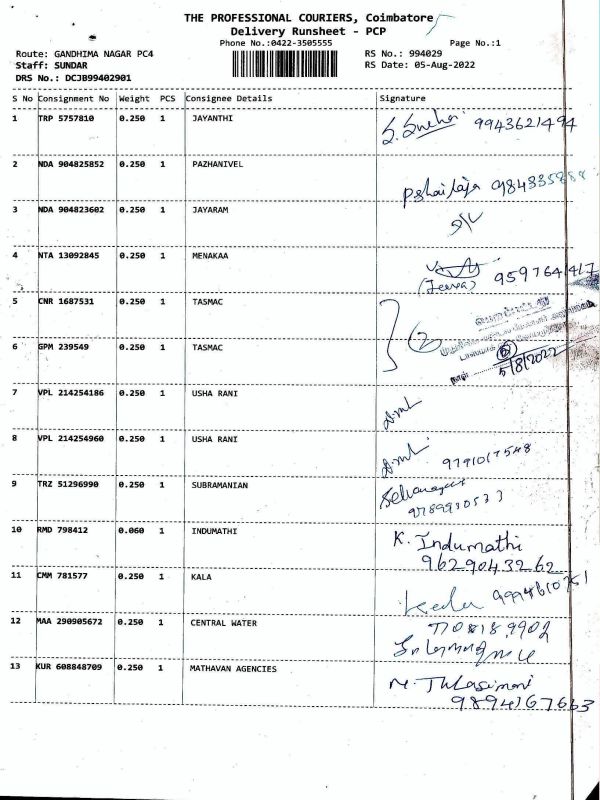 THE PROFESSIONAL COURIERS, Coimbatore
Delivery Runsheet - PCP
Phone No.:0422-3505555 Page No.:1
Route: GANDHIMA NAGAR PC4 RS No.: 994029
Staff: SUNDAR RS Date: 05-Aug-2022
DRS No.: DCJB99402901
S No Consignment No Weight PCS Consignee Details Signature
1 TRP 5757810 0.250 1 JAYANTHI
9943621494
2 NDA 904825852 0.250 1 PAZHANIVEL
3 NDA 904823602 0.250 1 JAYARAM
4 NTA 13092845 0.250 1 MENAKAA
9597641417
5 CNR 1687531 0.250 1 TASMAC
2
6 GPM 239549 0.250 1 TASMAC
5/8/2022
7 VPL 214254186 0.250 1 USHA RANI
8 VPL 214254960 0.250 1 USHA RANI
9791017548
9 TRZ 51296990 0.250 1 SUBRAMANIAN
9789930533
10 RMD 798412 0.060 1 INDUMATHI
K. Indumathi
9629043262
11 CMM 781577 0.250 1 KALA
9994610751
12 MAA 290905672 0.250 1 CENTRAL WATER
13 KUR 608848709 0.250 1 MATHAVAN AGENCIES
9894367663